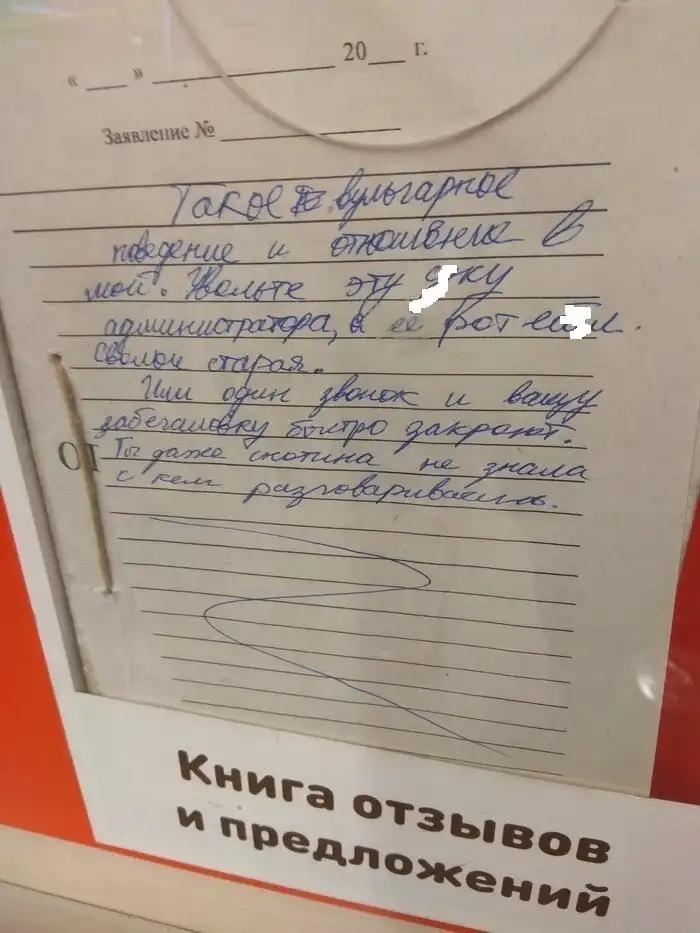 « __ » ____________ 20__ г.
Заявление № ____________
Такое вульгарное
поведение и отношение в
мой. Увольте эту
администратора, а её рот
Сволочь старая.
Или один звонок и вашу
забегаловку быстро закроют.
ОТ
Ты даже скотина не знала
с кем разговаривала.
Книга отзывов
и предложений